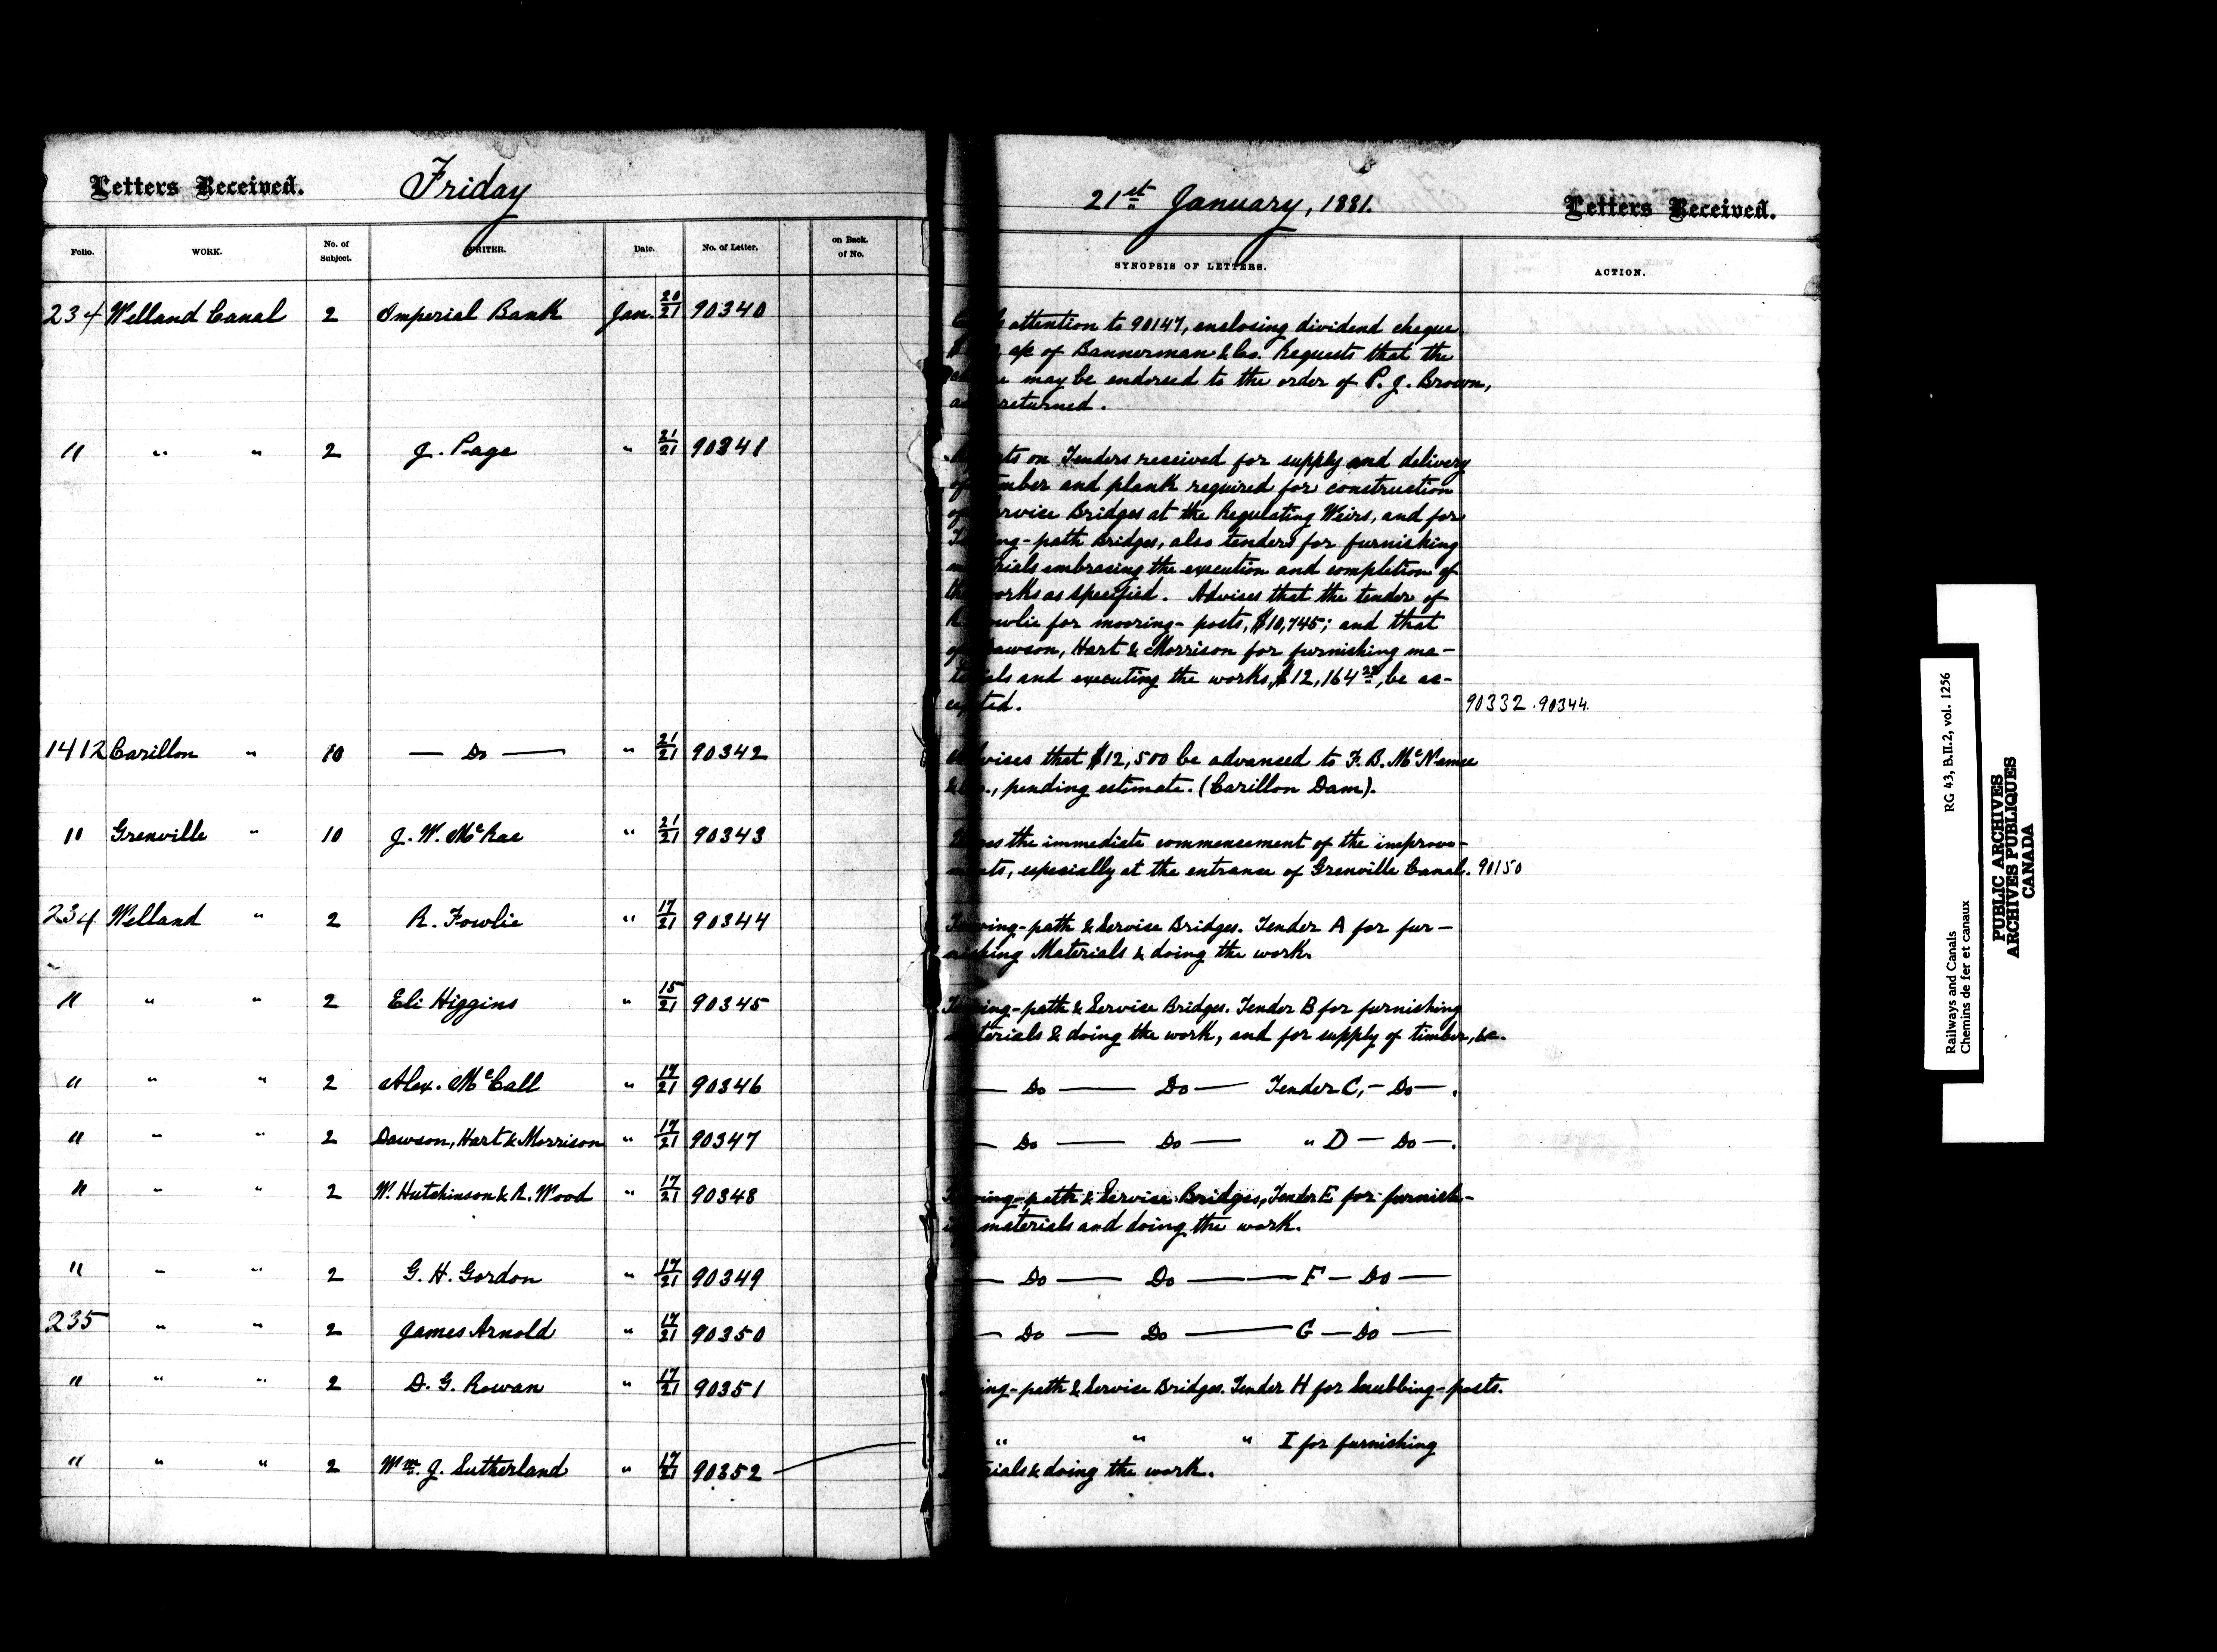 Letters Received. Friday
21st January, 1881. Letters Received.
Folio. WORK. No. of Subject. WRITER. Date. No. of Letter. on Back of No.
SYNOPSIS OF LETTERS. ACTION.
234 Welland Canal 2 Imperial Bank Jan. 20/21 90340
attention to 90147, enclosing dividend cheque
a/c of Bannerman & Co. Requests that the
may be endorsed to the order of P. J. Brown,
returned.
" " " 2 J. Page " 21/21 90341
on Tenders received for supply and delivery
of timber and plank required for construction
of Service Bridges at the Regulating Weirs, and for
Towing-path Bridges, also tenders for furnishing
materials embracing the execution and completion of
the works as specified. Advises that the tender of
R. Fowlie for mooring-posts, $10,745; and that
of Dawson, Hart & Morrison for furnishing ma-
terials and executing the works, $12,164 22, be ac-
cepted. 90332. 90344.
1412 Carillon " 10 — Do — " 21/21 90342
Advises that $12,500 be advanced to F. B. McNamee
& Co., pending estimate. (Carillon Dam).
" Grenville " 10 J. W. McRae " 21/21 90343
the immediate commencement of the improve-
ments, especially at the entrance of Grenville Canal. 90150
234 Welland " 2 R. Fowlie " 17/21 90344
Towing-path & Service Bridges. Tender A for fur-
nishing Materials & doing the work.
" " " 2 Eli Higgins " 15/21 90345
Towing-path & Service Bridges. Tender B for furnishing
materials & doing the work, and for supply of timber, &c.
" " " 2 Alex. McCall " 17/21 90346
— Do — Do — Tender C, — Do —.
" " " 2 Dawson, Hart & Morrison " 17/21 90347
— Do — Do — " D — Do —.
" " " 2 W. Hutchinson & R. Wood " 17/21 90348
Towing-path & Service Bridges, Tender E for furnish-
ing materials and doing the work.
" " " 2 G. H. Gordon " 17/21 90349
— Do — Do — F — Do —
235 " " 2 James Arnold " 17/21 90350
— Do — Do — G — Do —
" " " 2 D. G. Rowan " 17/21 90351
Towing-path & Service Bridges. Tender H for Snubbing-posts.
" " " 2 Wm. J. Sutherland " 17/21 90352
" " " I for furnishing
materials & doing the work.
Railways and Canals RG 43, B.II.2, vol. 1256
Chemins de fer et canaux
PUBLIC ARCHIVES
ARCHIVES PUBLIQUES
CANADA